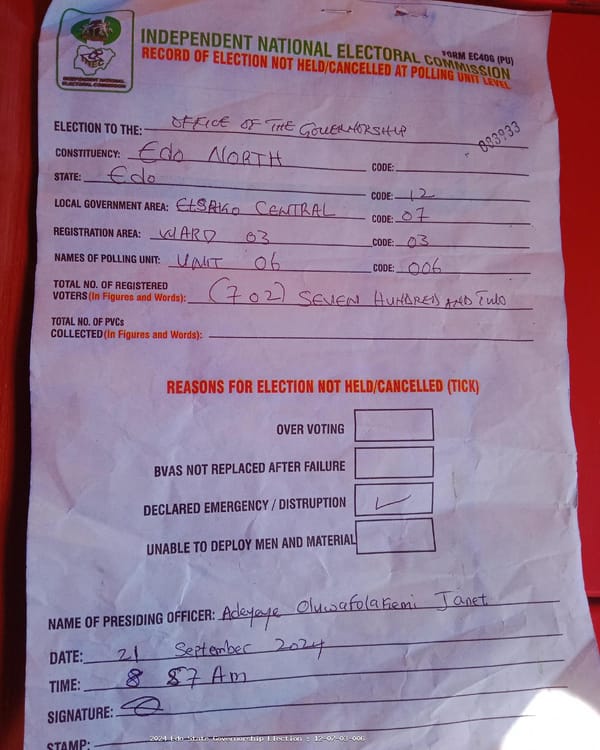 INDEPENDENT NATIONAL ELECTORAL COMMISSION
FORM EC40G (PU)
RECORD OF ELECTION NOT HELD/CANCELLED AT POLLING UNIT LEVEL
INEC
INDEPENDENT NATIONAL
ELECTORAL COMMISSION
ELECTION TO THE: OFFICE OF THE GOVERNORSHIP
003933
CONSTITUENCY: Edo NORTH CODE:
STATE: Edo CODE: 12
LOCAL GOVERNMENT AREA: ETSAKO CENTRAL CODE: 07
REGISTRATION AREA: WARD 03 CODE: 03
NAMES OF POLLING UNIT: UNIT 06 CODE: 006
TOTAL NO. OF REGISTERED
VOTERS (In Figures and Words): (702) SEVEN HUNDRED AND TWO
TOTAL NO. OF PVCs
COLLECTED (In Figures and Words):
REASONS FOR ELECTION NOT HELD/CANCELLED (TICK)
OVER VOTING
BVAS NOT REPLACED AFTER FAILURE
DECLARED EMERGENCY / DISTRUPTION ✓
UNABLE TO DEPLOY MEN AND MATERIAL
NAME OF PRESIDING OFFICER: Adeyeye Oluwafolakemi Janet
DATE: 21 September 2024
TIME: 8 57 Am
SIGNATURE:
STAMP:
2024 Edo State Governorship Election : 12-07-03-006